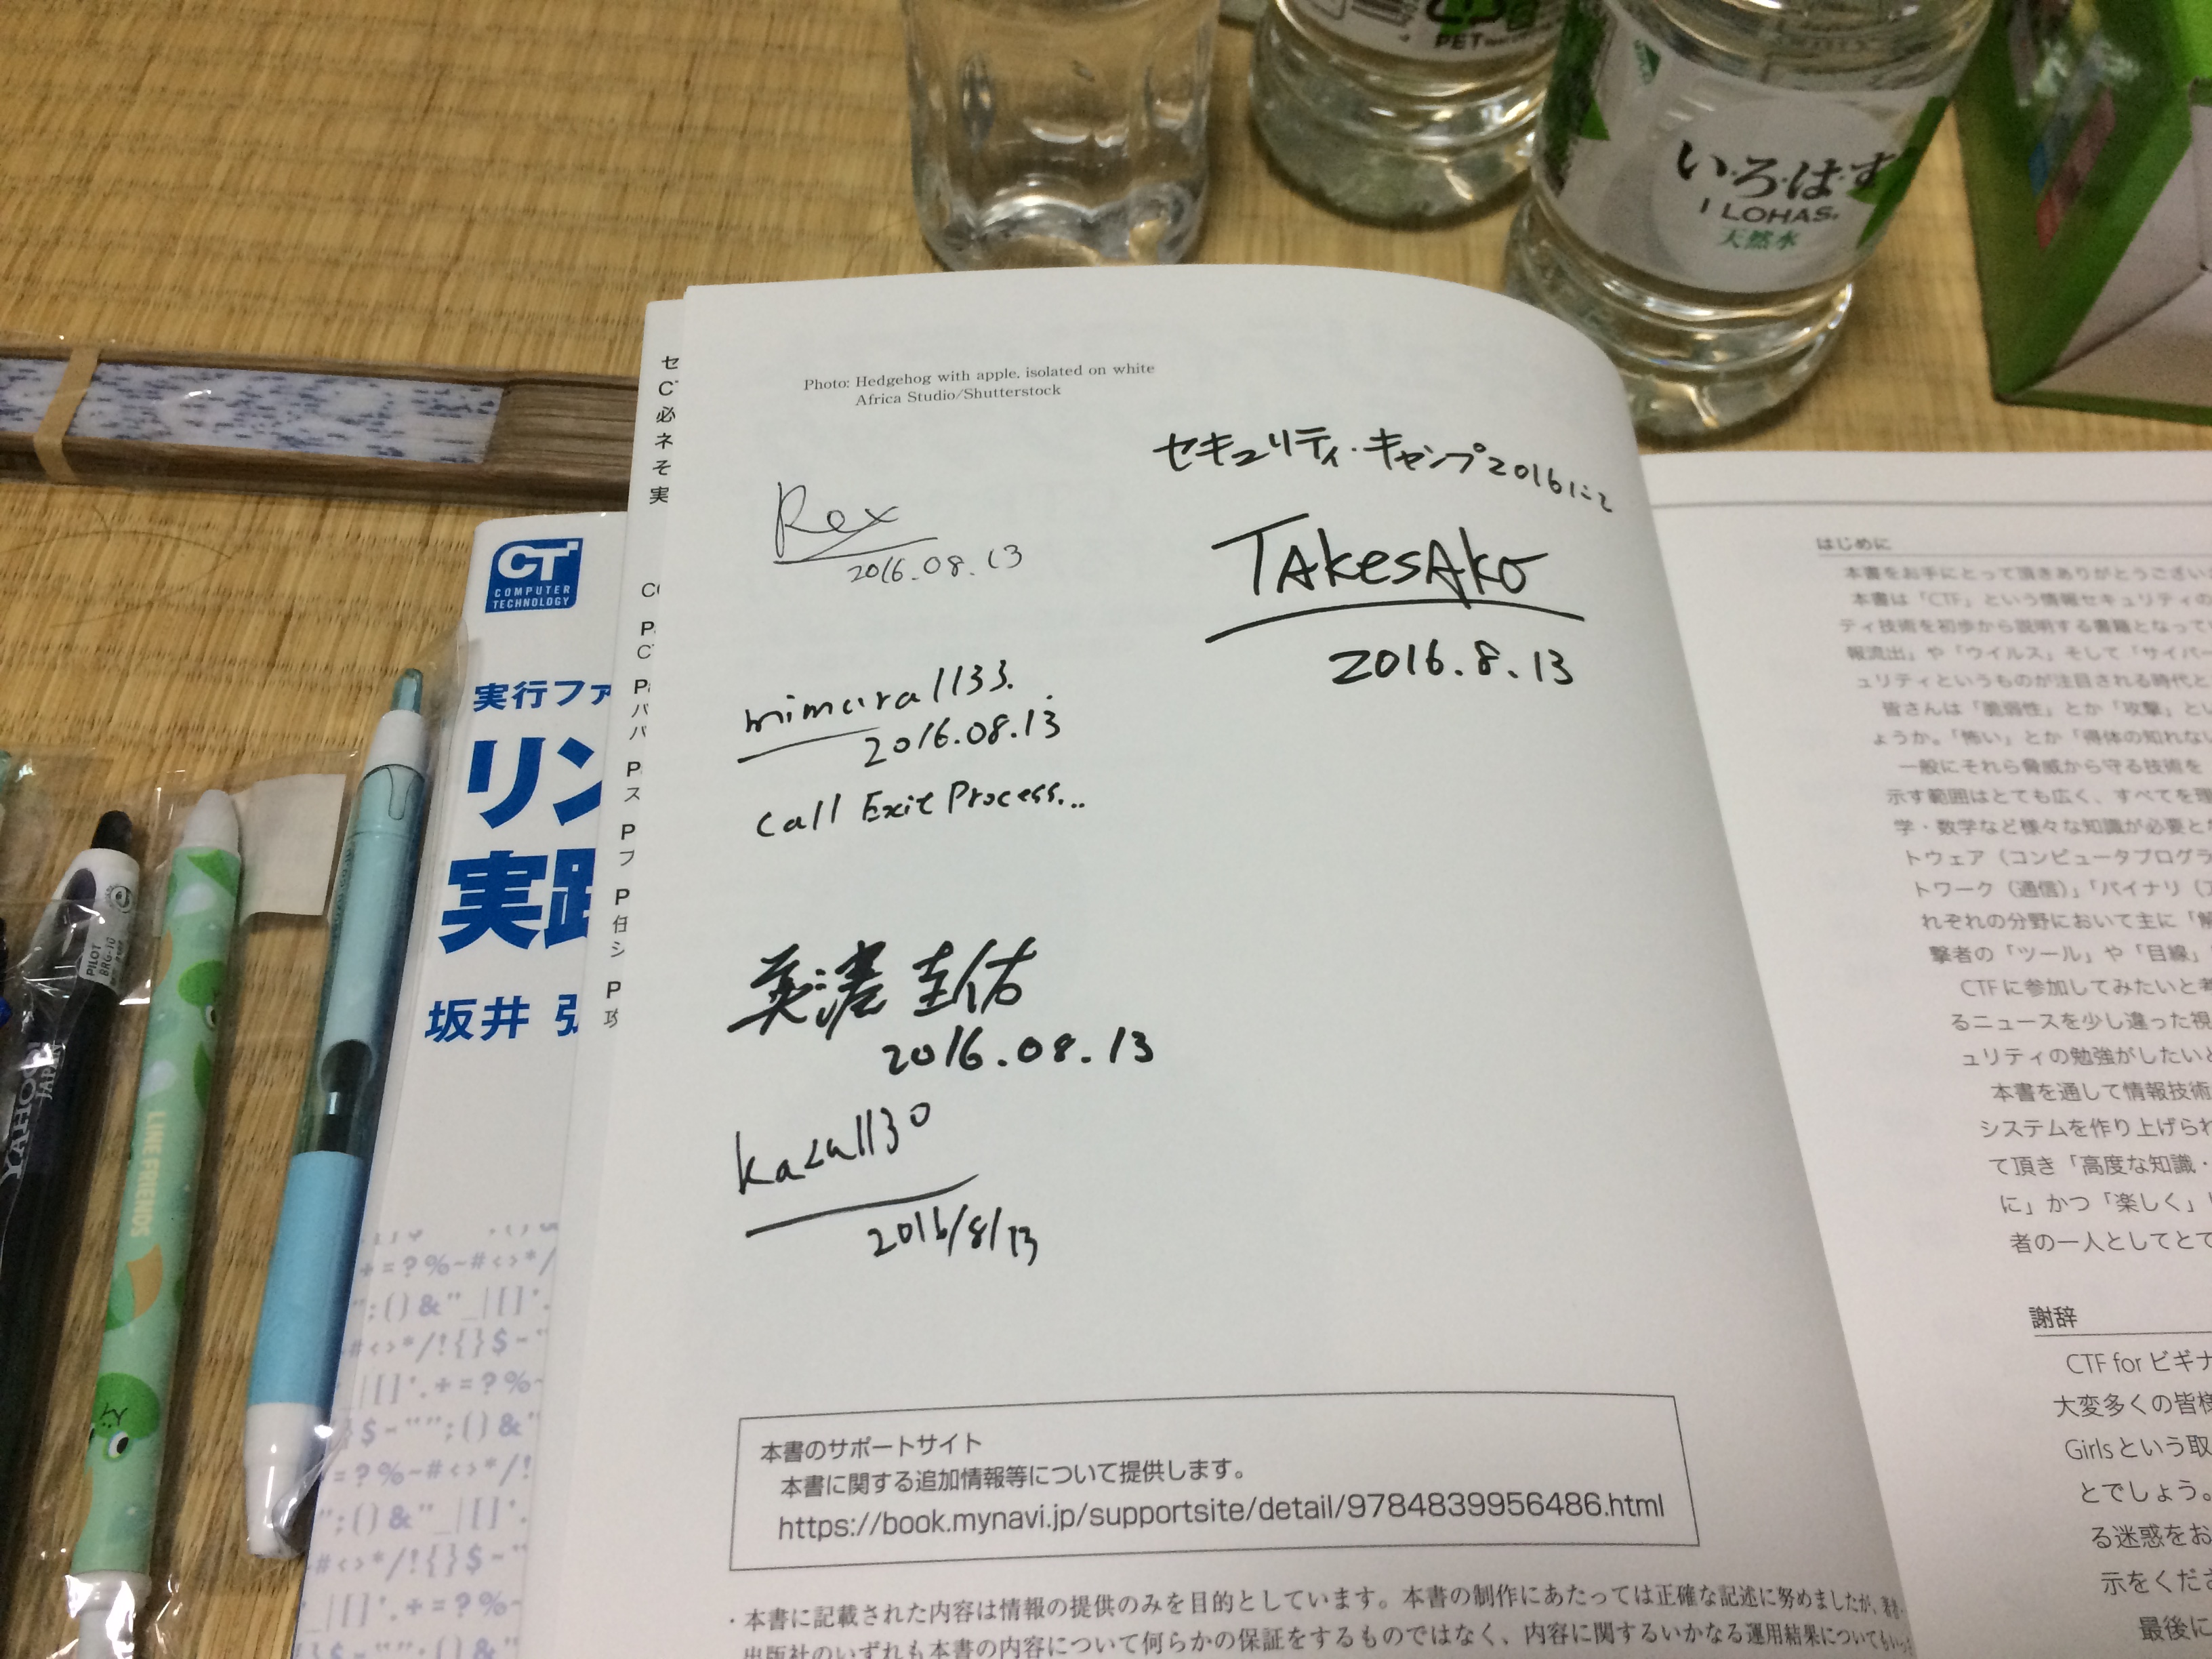 PET
いろはす
I LOHAS
天然水
Photo: Hedgehog with apple, isolated on white
Africa Studio/Shutterstock
セキュリティ・キャンプ2016にて
Rex
2016.08.13
TAkesAko
2016.8.13
mimura1133.
2016.08.13
Call Exit Process...
美濃 圭佑
2016.08.13
kazu1130
2016/8/13
本書のサポートサイト
本書に関する追加情報等について提供します。
https://book.mynavi.jp/supportsite/detail/9784839956486.html
・本書に記載された内容は情報の提供のみを目的としています。本書の制作にあたっては正確な記述に努めましたが、著者・
出版社のいずれも本書の内容について何らかの保証をするものではなく、内容に関するいかなる運用結果についてもいっ
セ
C
必
ネ
そ
実
P
C
P
パ
パ
P
ス
P
プ
P
任
シ
P
CT
COMPUTER
TECHNOLOGY
実行ファ
リン
実践
坂井 弘
YAHOO!
JAPAN
PILOT
BRG-10
LINE FRIENDS
+=?%~#<>*/
";()&"_|[]'.
#<>*/!{}$~"
|[]'.+=?%~
}$~"";()&"
=?%~#<>*/!
";()&"_|[]'.
#<>*/!{}$~"
_|[]'.+=?%~
はじめに
本書をお手にとって頂きありがとうござい
本書は「CTF」という情報セキュリティの
ティ技術を初歩から説明する書籍となってい
報流出」や「ウイルス」そして「サイバー
ュリティというものが注目される時代と
皆さんは「脆弱性」とか「攻撃」とい
ょうか。「怖い」とか「得体の知れない
一般にそれら脅威から守る技術を
示す範囲はとても広く、すべてを理
学・数学など様々な知識が必要と
トウェア（コンピュータプログラ
トワーク（通信）」「バイナリ（
れぞれの分野において主に「解
撃者の「ツール」や「目線」
CTFに参加してみたいと考
るニュースを少し違った視
ュリティの勉強がしたいと
本書を通して情報技術
システムを作り上げられ
て頂き「高度な知識・
に」かつ「楽しく」
者の一人としてとて
謝辞
CTF for ビギナ
大変多くの皆様
Girlsという取
とでしょう。
る迷惑をお
示をくださ
最後に